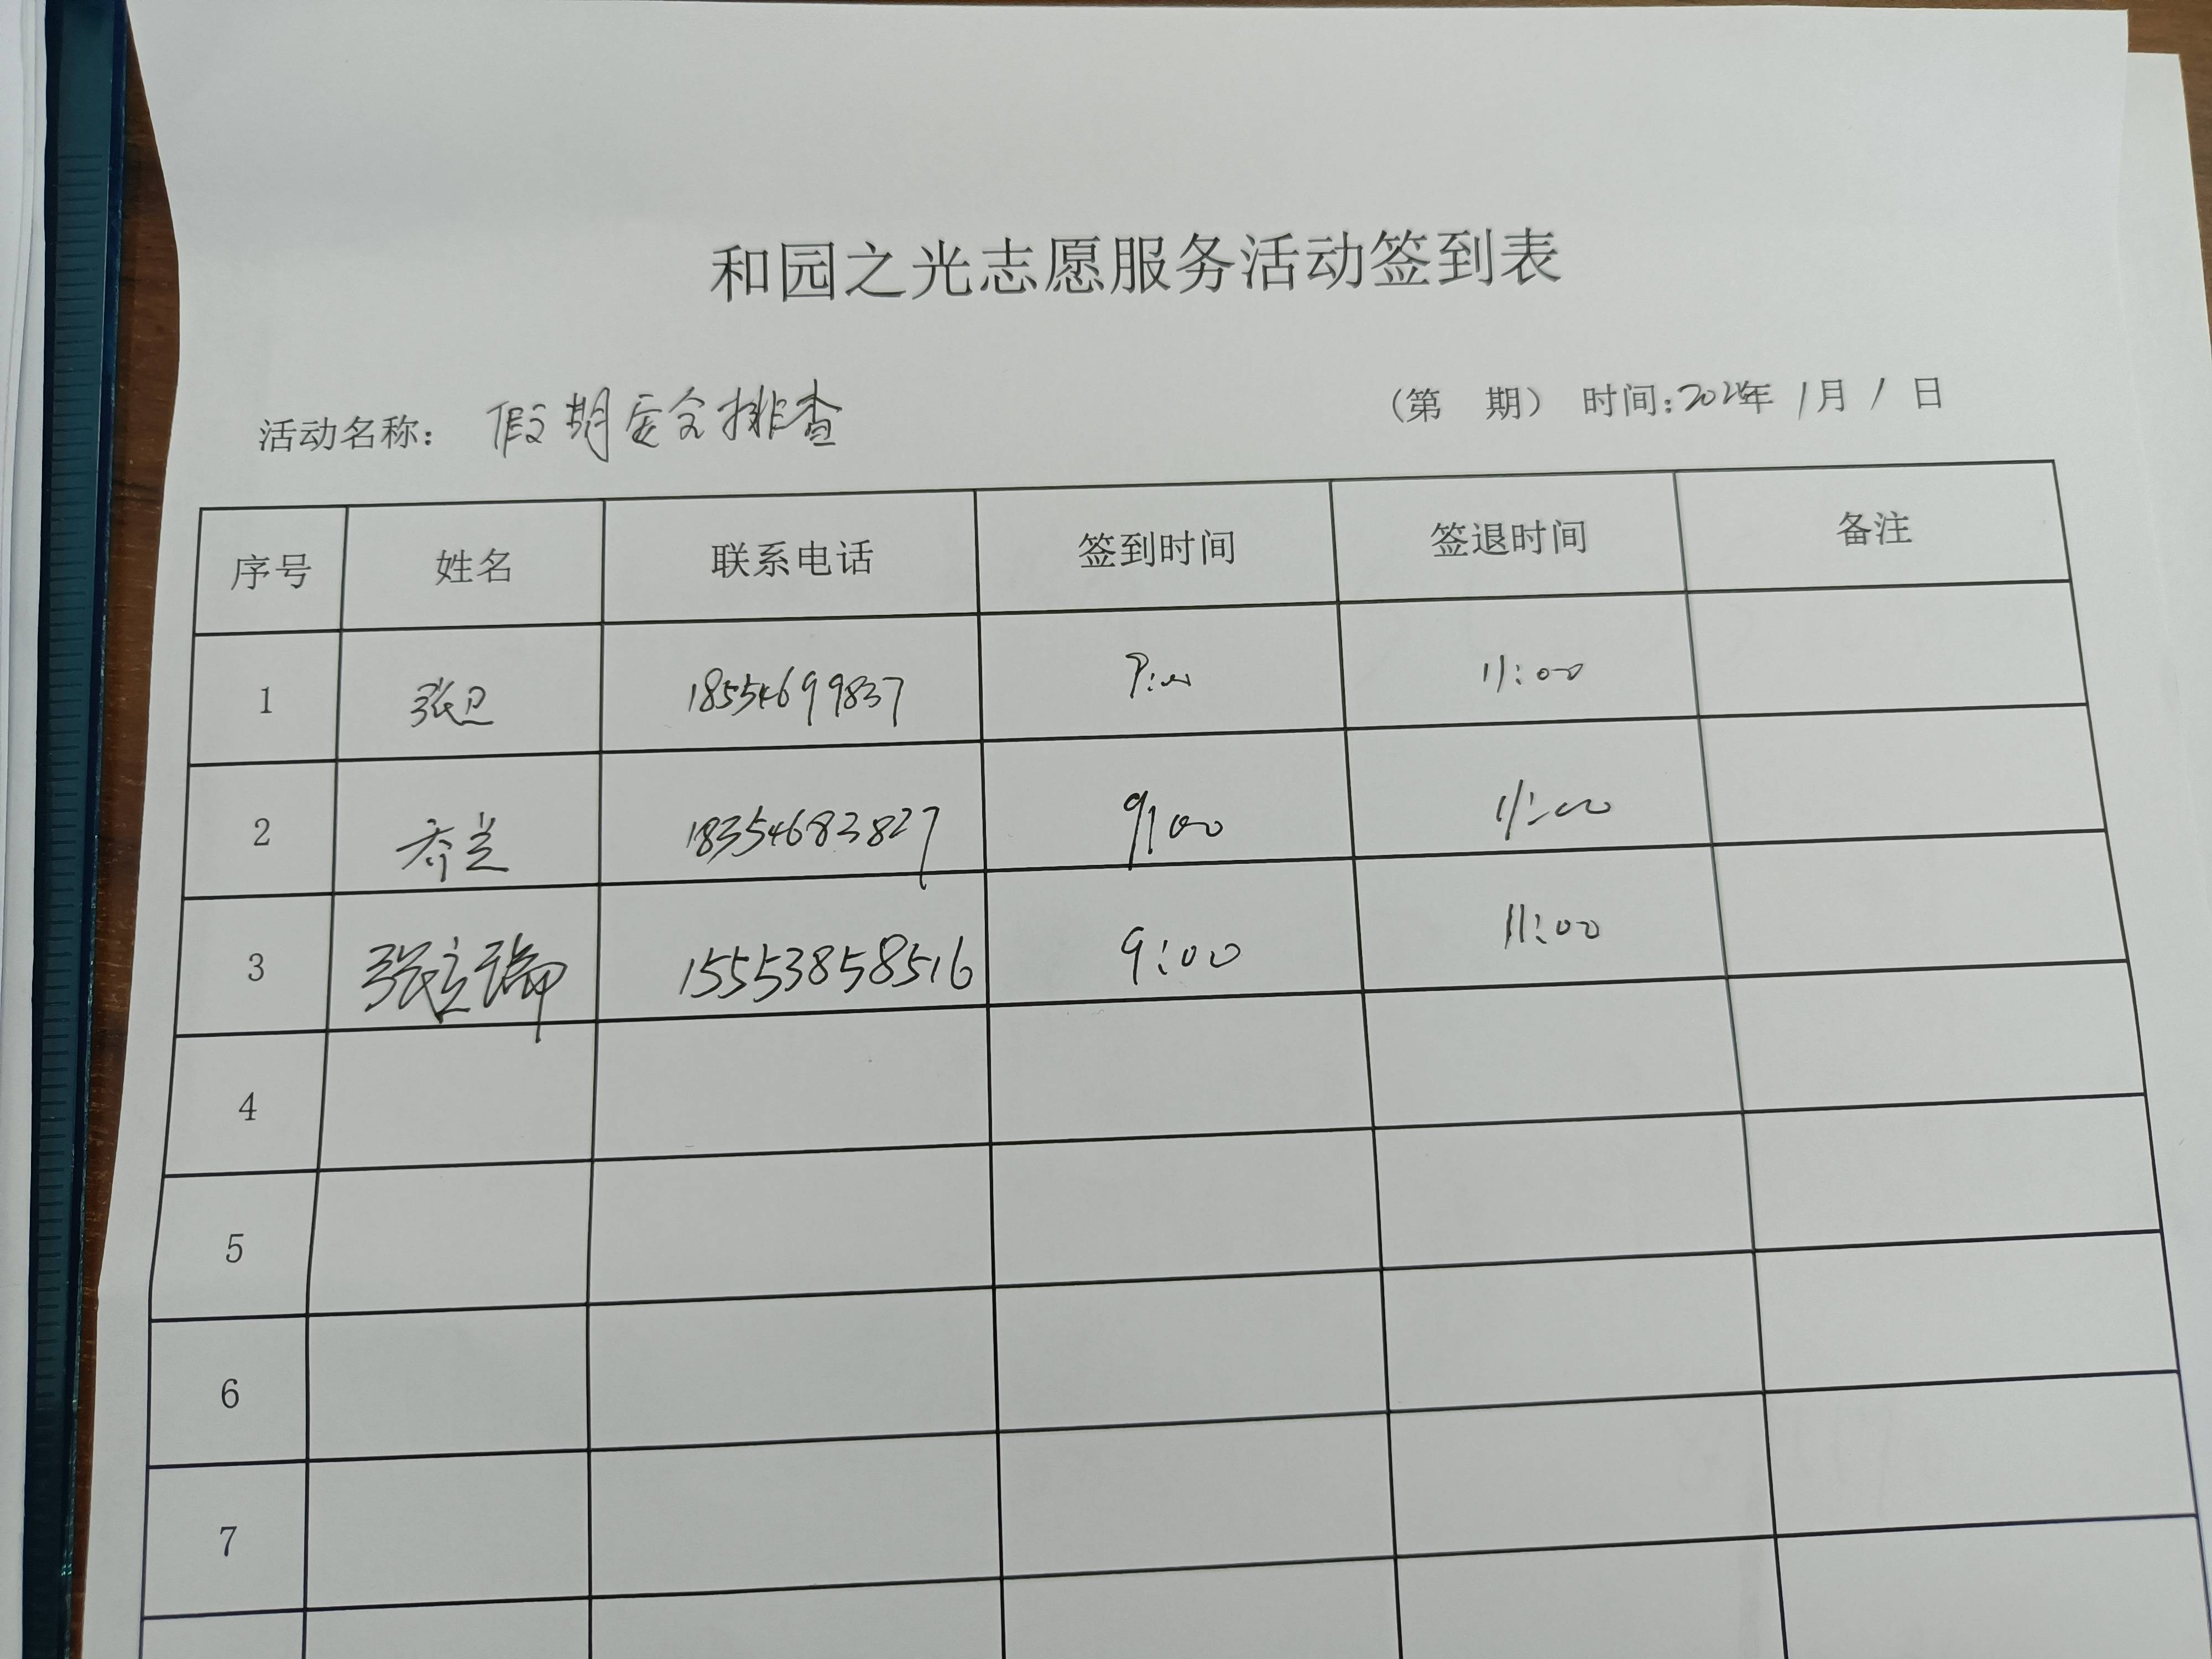 和园之光志愿服务活动签到表
活动名称： 假期安全排查 （第 期） 时间：2024年 1月 1日
序号 姓名 联系电话 签到时间 签退时间 备注
1 张卫 18554699837 9:00 11:00
2 乔兰 18354683827 9:00 11:00
3 张立瑞 15553858516 9:00 11:00
4
5
6
7